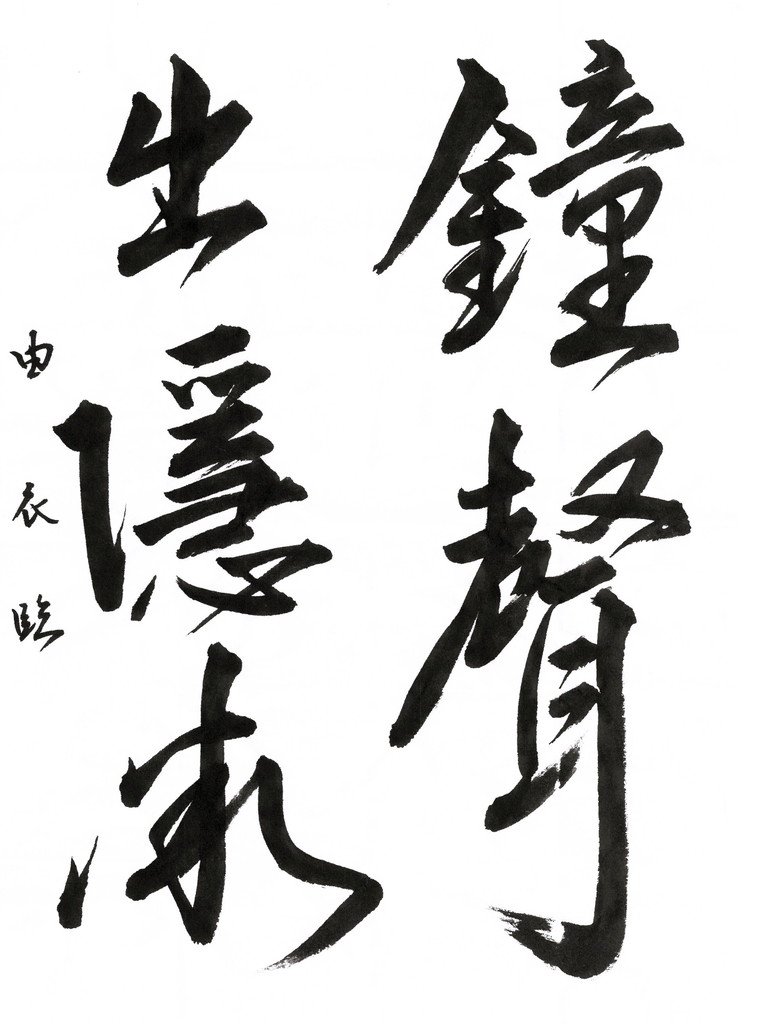 鐘聲
出隱
由衣臨